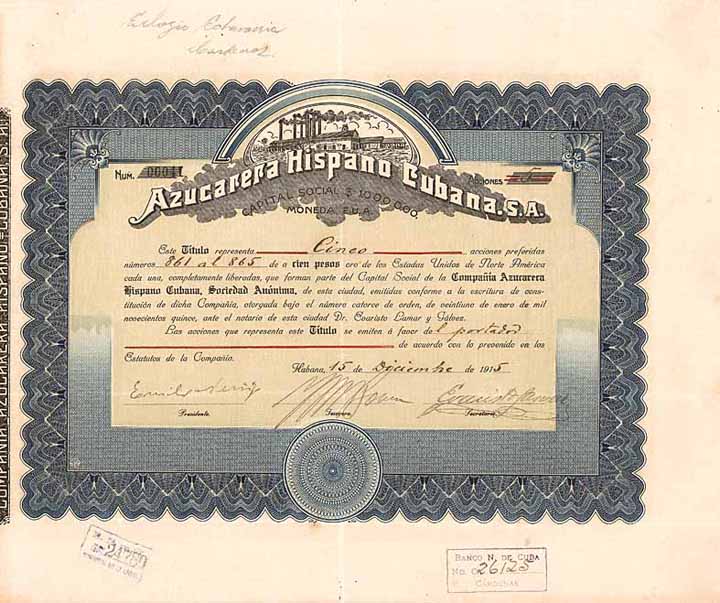 Eulogio Echavarria
Cardenas
NUM. 0004
ACCIONES 5
AZUCARERA HISPANO CUBANA. S.A.
CAPITAL SOCIAL $ 1.000.000.
MONEDA E.U.A.
Este Título representa Cinco acciones preferidas
números 861 al 865 de a cien pesos oro de los Estados Unidos de Norte América
cada una, completamente liberadas, que forman parte del Capital Social de la Compañía Azucarera
Hispano Cubana, Sociedad Anónima, de esta ciudad, emitidas conforme a la escritura de cons-
titución de dicha Compañía, otorgada bajo el número catorce de orden, de veintiuno de enero de mil
novecientos quince, ante el notario de esta ciudad Dr. Evaristo Lamar y Gálvez.
Las acciones que representa este Título se emiten á favor del portador
de acuerdo con lo prevenido en los
Estatutos de la Compañía.
Habana, 15 de Diciembre de 1915
Presidente.
Tesorero.
Secretario.
COMPAÑIA AZUCARERA HISPANO=CUBANA S. A.
BANCO N. DE CUBA
No. C 26125
CARDENAS